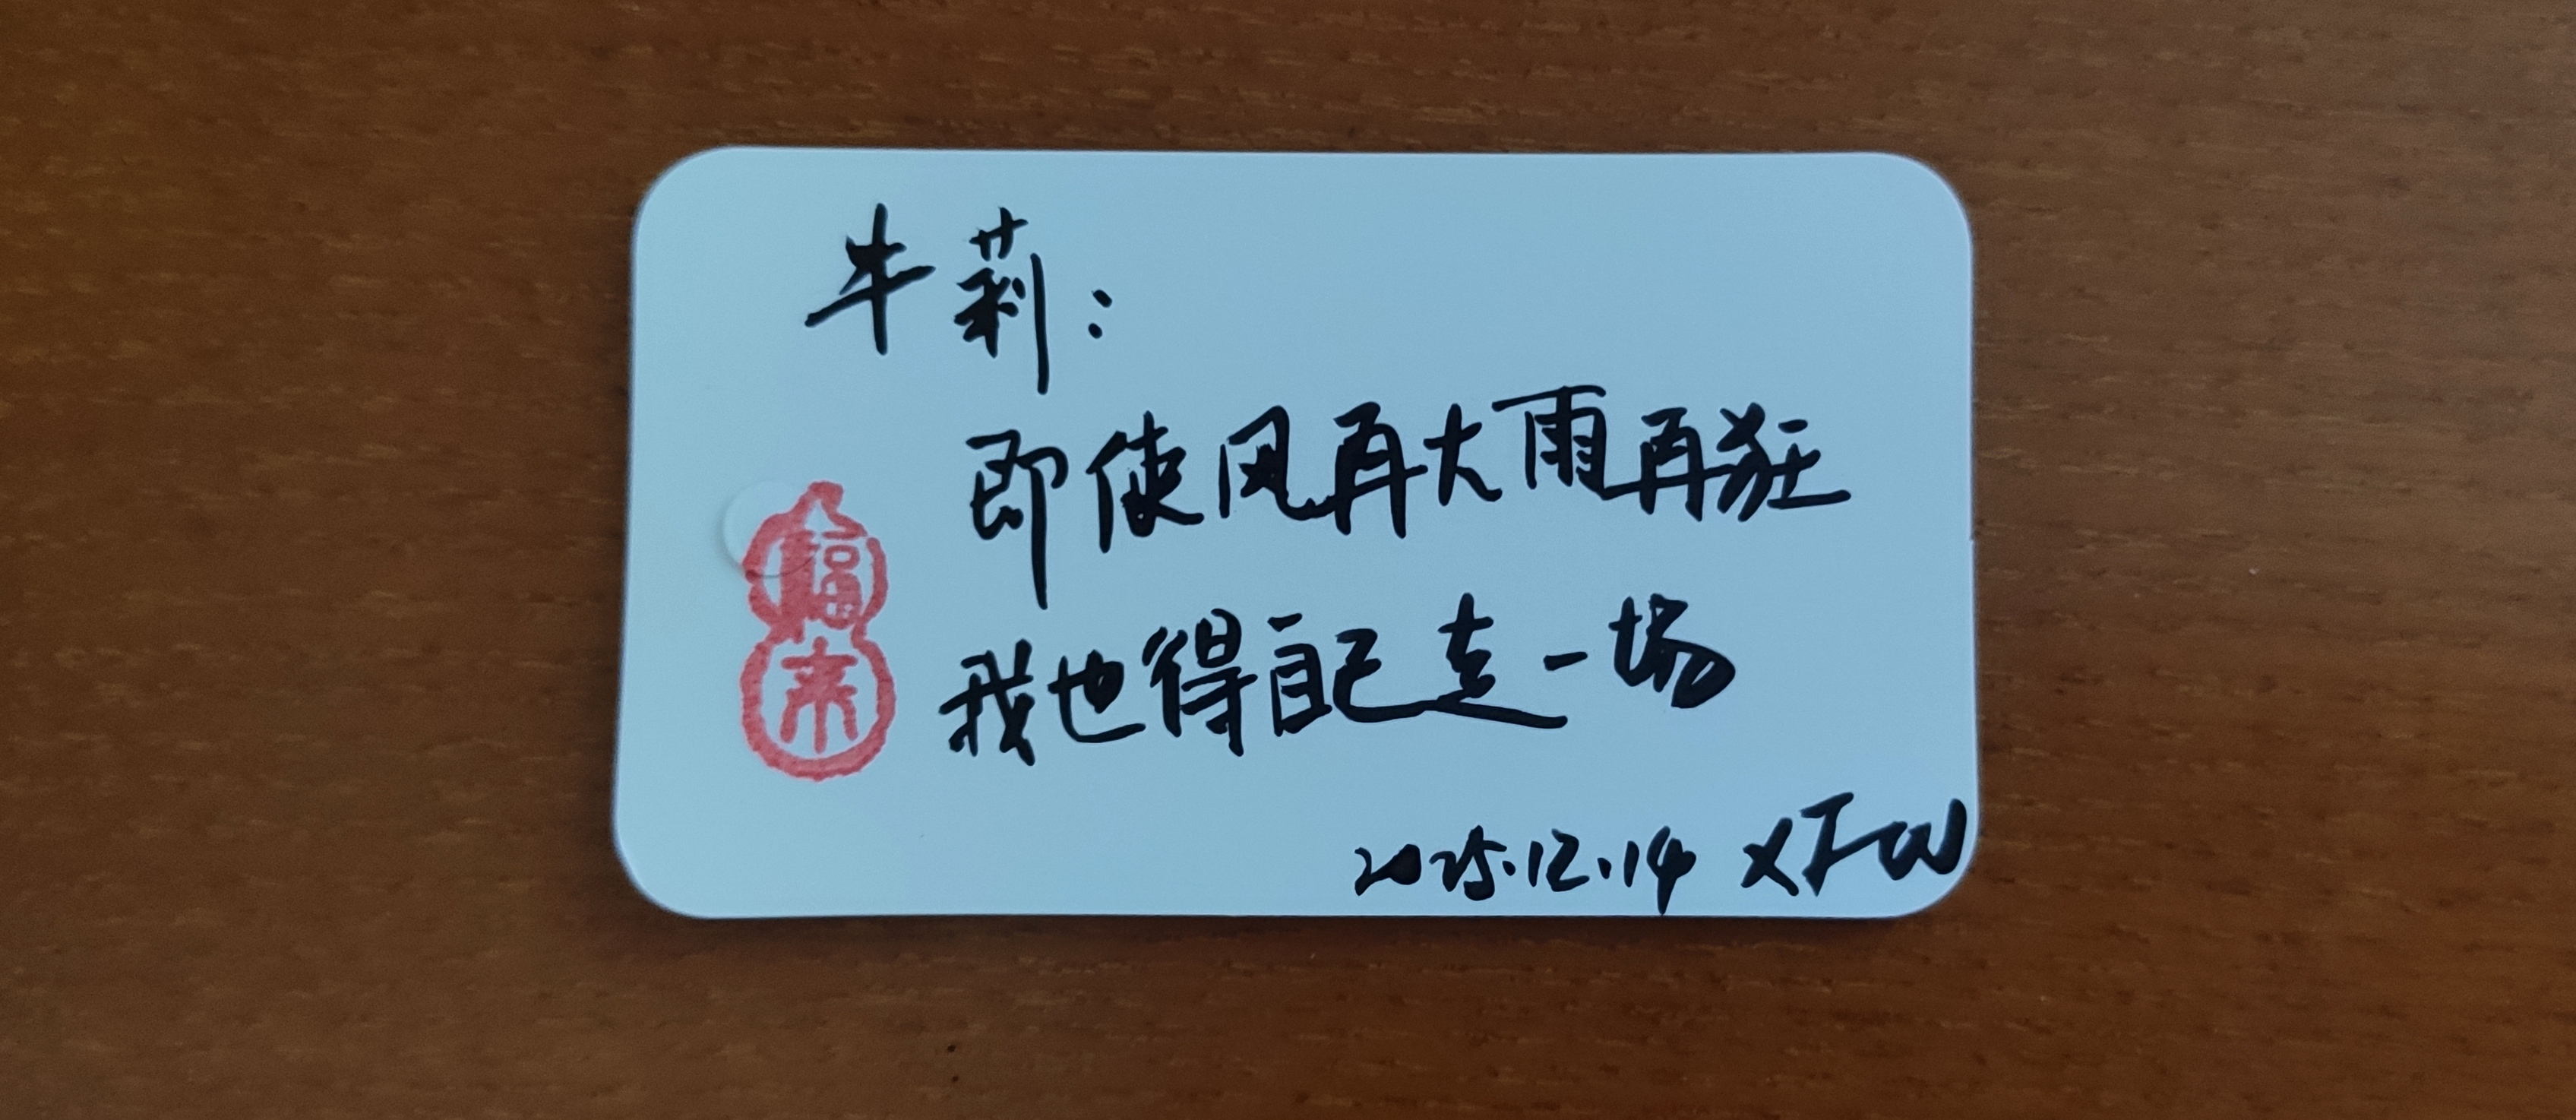 牛莉：
即使风再大雨再狂
福来
我也得自己走一场
2025.12.14 XFW